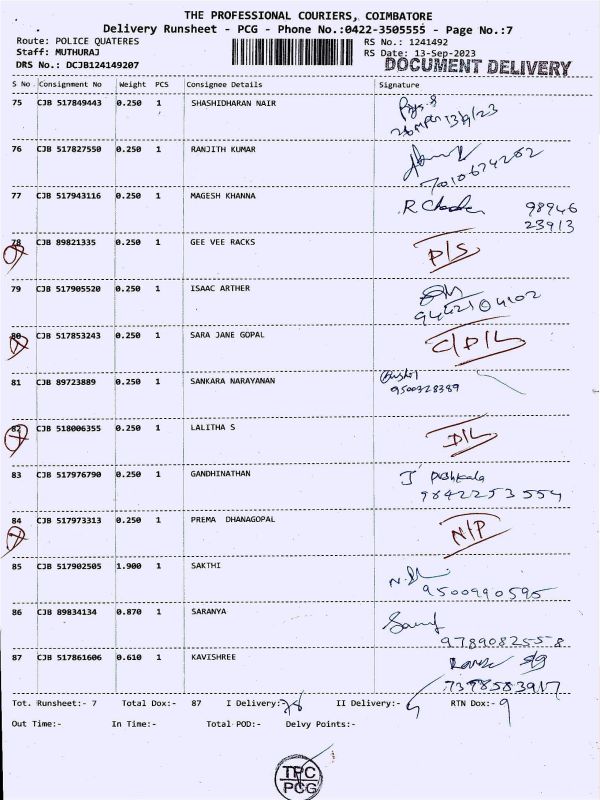 THE PROFESSIONAL COURIERS, COIMBATORE
Delivery Runsheet - PCG - Phone No.:0422-3505555 - Page No.:7
Route: POLICE QUATERES RS No.: 1241492
Staff: MUTHURAJ RS Date: 13-Sep-2023
DRS No.: DCJB124149207 DOCUMENT DELIVERY
S No Consignment No Weight PCS Consignee Details Signature
75 CJB 517849443 0.250 1 SHASHIDHARAN NAIR
13/9/23
76 CJB 517827550 0.250 1 RANJITH KUMAR
7010674262
77 CJB 517943116 0.250 1 MAGESH KHANNA R 98946
23913
78 CJB 89821335 0.250 1 GEE VEE RACKS P/S
79 CJB 517905520 0.250 1 ISAAC ARTHER
9442104102
80 CJB 517853243 0.250 1 SARA JANE GOPAL C/D/L
81 CJB 89723889 0.250 1 SANKARA NARAYANAN
9500328389
82 CJB 518006355 0.250 1 LALITHA S D/L
83 CJB 517976790 0.250 1 GANDHINATHAN J Pushkala
9842253554
84 CJB 517973313 0.250 1 PREMA DHANAGOPAL N/P
85 CJB 517902505 1.900 1 SAKTHI
9500990595
86 CJB 89834134 0.870 1 SARANYA
9789082558
87 CJB 517861606 0.610 1 KAVISHREE
7398583917
Tot. Runsheet:- 7 Total Dox:- 87 I Delivery:-78 II Delivery:- RTN Dox:- 9
Out Time:- In Time:- Total POD:- Delvy Points:-
TPC
PCG